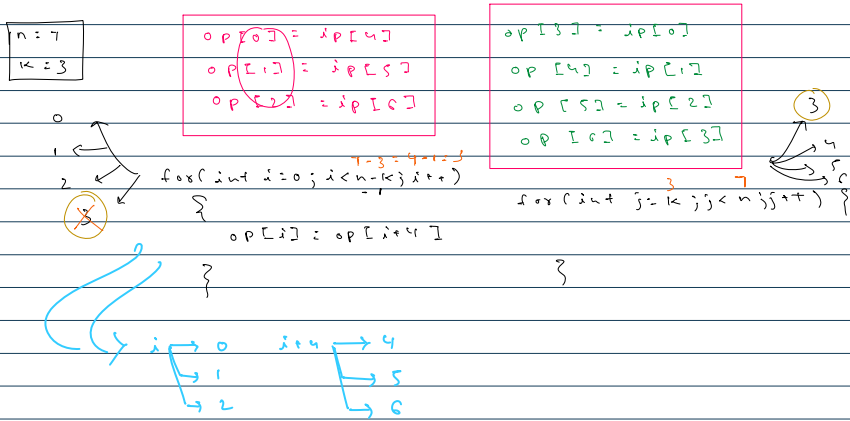 n = 7
k = 3
op[0] = ip[4]
op[1] = ip[5]
op[2] = ip[6]
op[3] = ip[0]
op[4] = ip[1]
op[5] = ip[2]
op[6] = ip[3]
0
1
2
3
7-3=4-1=3
for(int i=0; i<n-k; i++)
-1
{
op[i] = op[i+4]
}
3
4
5
6
3 7
for(int j=k; j<n; j++) {
}
i 0
1
2
i+4 4
5
6